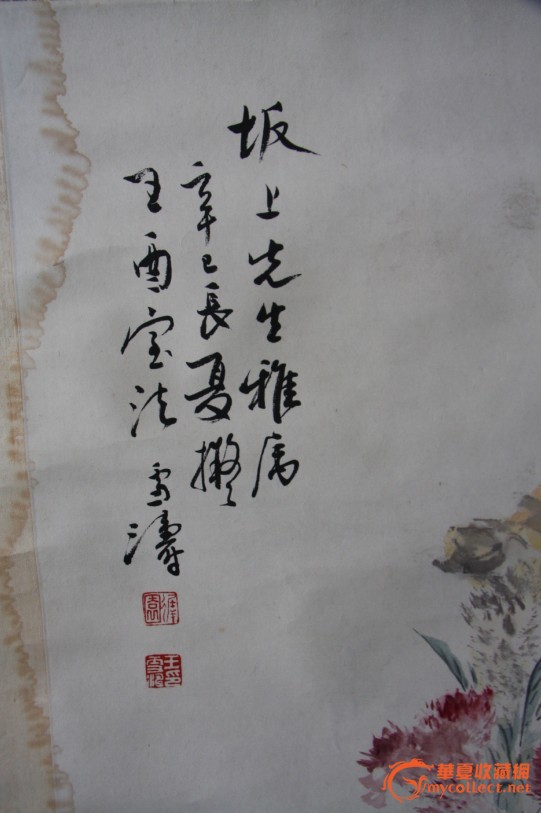 坂上先生雅属
辛巳長夏擬
王酉室法 雪濤
華夏收藏網
mycollect.net